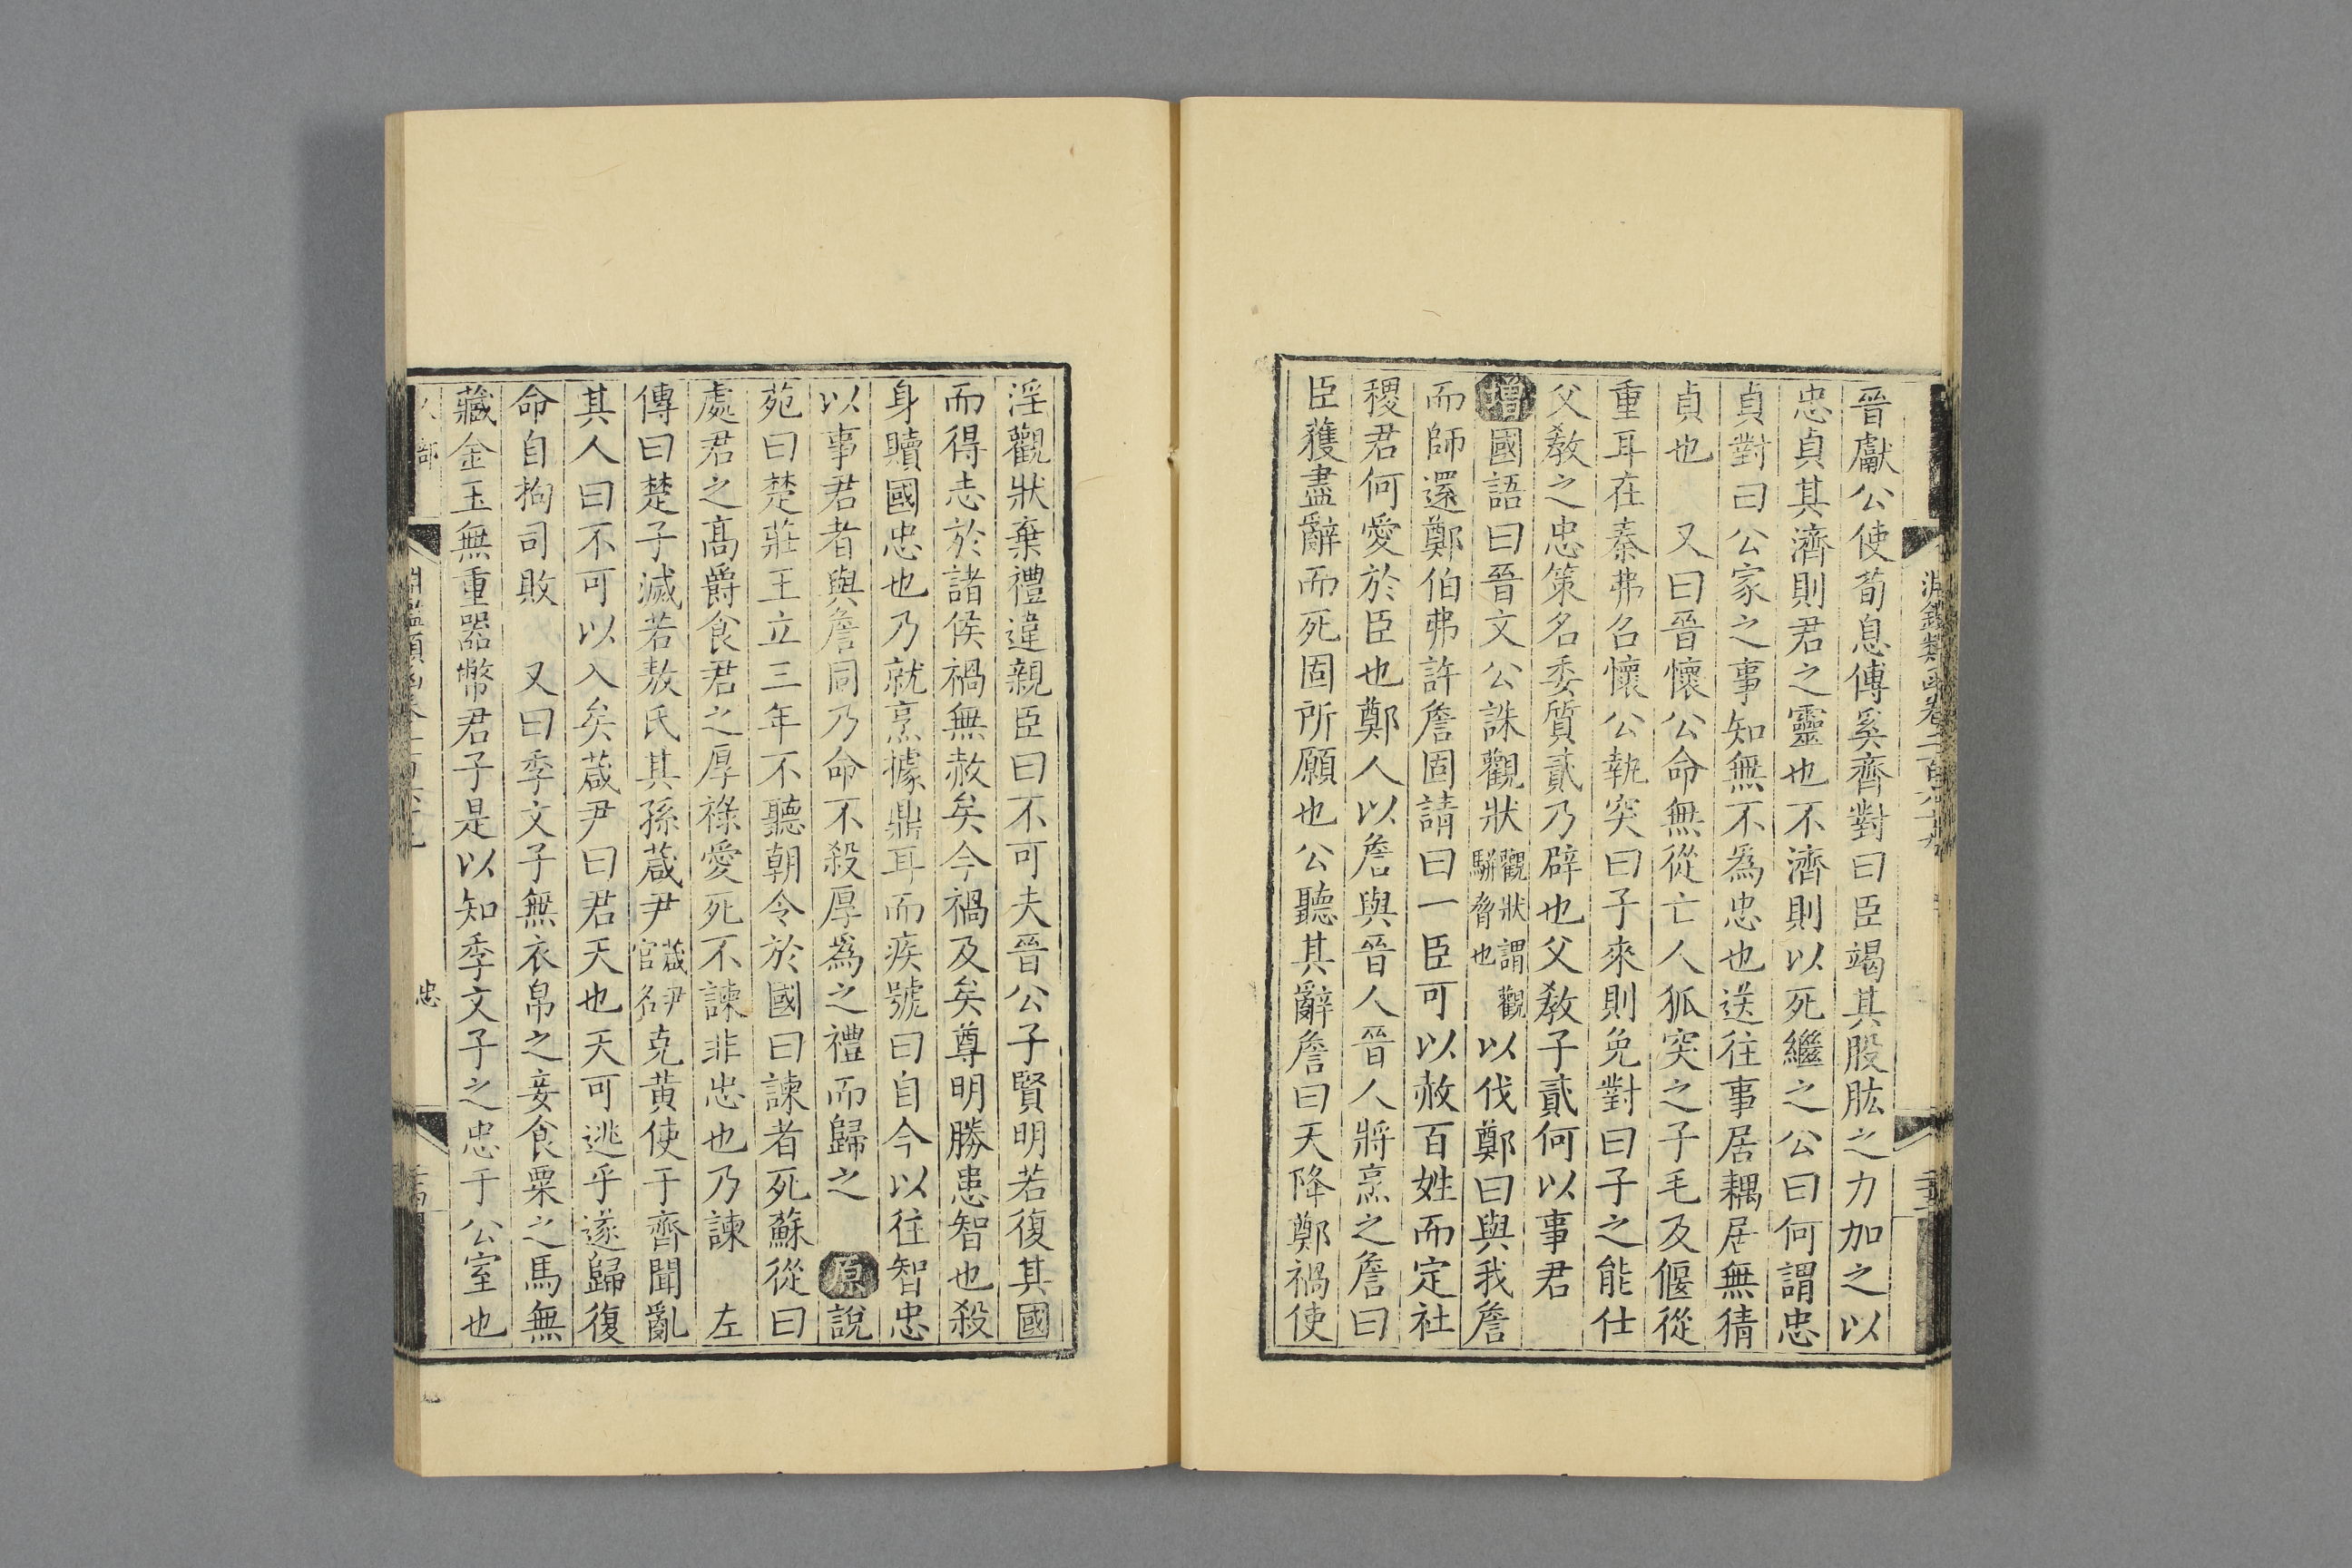 晉獻公使荀息傅奚齊對曰臣竭其股肱之力加之以
忠貞其濟則君之靈也不濟則以死繼之公曰何謂忠
貞對曰公家之事知無不爲忠也送往事居耦居無猜
貞也　又曰晉懷公命無從亡人狐突之子毛及偃從
重耳在秦弗召懷公執突曰子來則免對曰子之能仕
父敎之忠策名委質貳乃辟也父敎子貳何以事君
增國語曰晉文公誅觀狀觀狀謂觀駢脅也以伐鄭曰與我詹
而師還鄭伯弗許詹固請曰一臣可以赦百姓而定社
稷君何愛於臣也鄭人以詹與晉人晉人將烹之詹曰
臣獲盡辭而死固所願也公聽其辭詹曰天降鄭禍使
淫觀狀棄禮違親臣曰不可夫晉公子賢明若復其國
而得志於諸侯禍無赦矣今禍及矣尊明勝患智也殺
身贖國忠也乃就烹據鼎耳而疾號曰自今以往智忠
以事君者與詹同乃命不殺厚爲之禮而歸之　原說
苑曰楚莊王立三年不聽朝令於國曰諫者死蘇從曰
處君之高爵食君之厚祿愛死不諫非忠也乃諫　左
傳曰楚子滅若敖氏其孫葴尹葴尹官名克黃使于齊聞亂
其人曰不可以入矣葴尹曰君天也天可逃乎遂歸復
命自拘司敗　又曰季文子無衣帛之妾食粟之馬無
藏金玉無重器幣君子是以知季文子之忠于公室也
淵鑑類函卷二百六十九
人部
忠